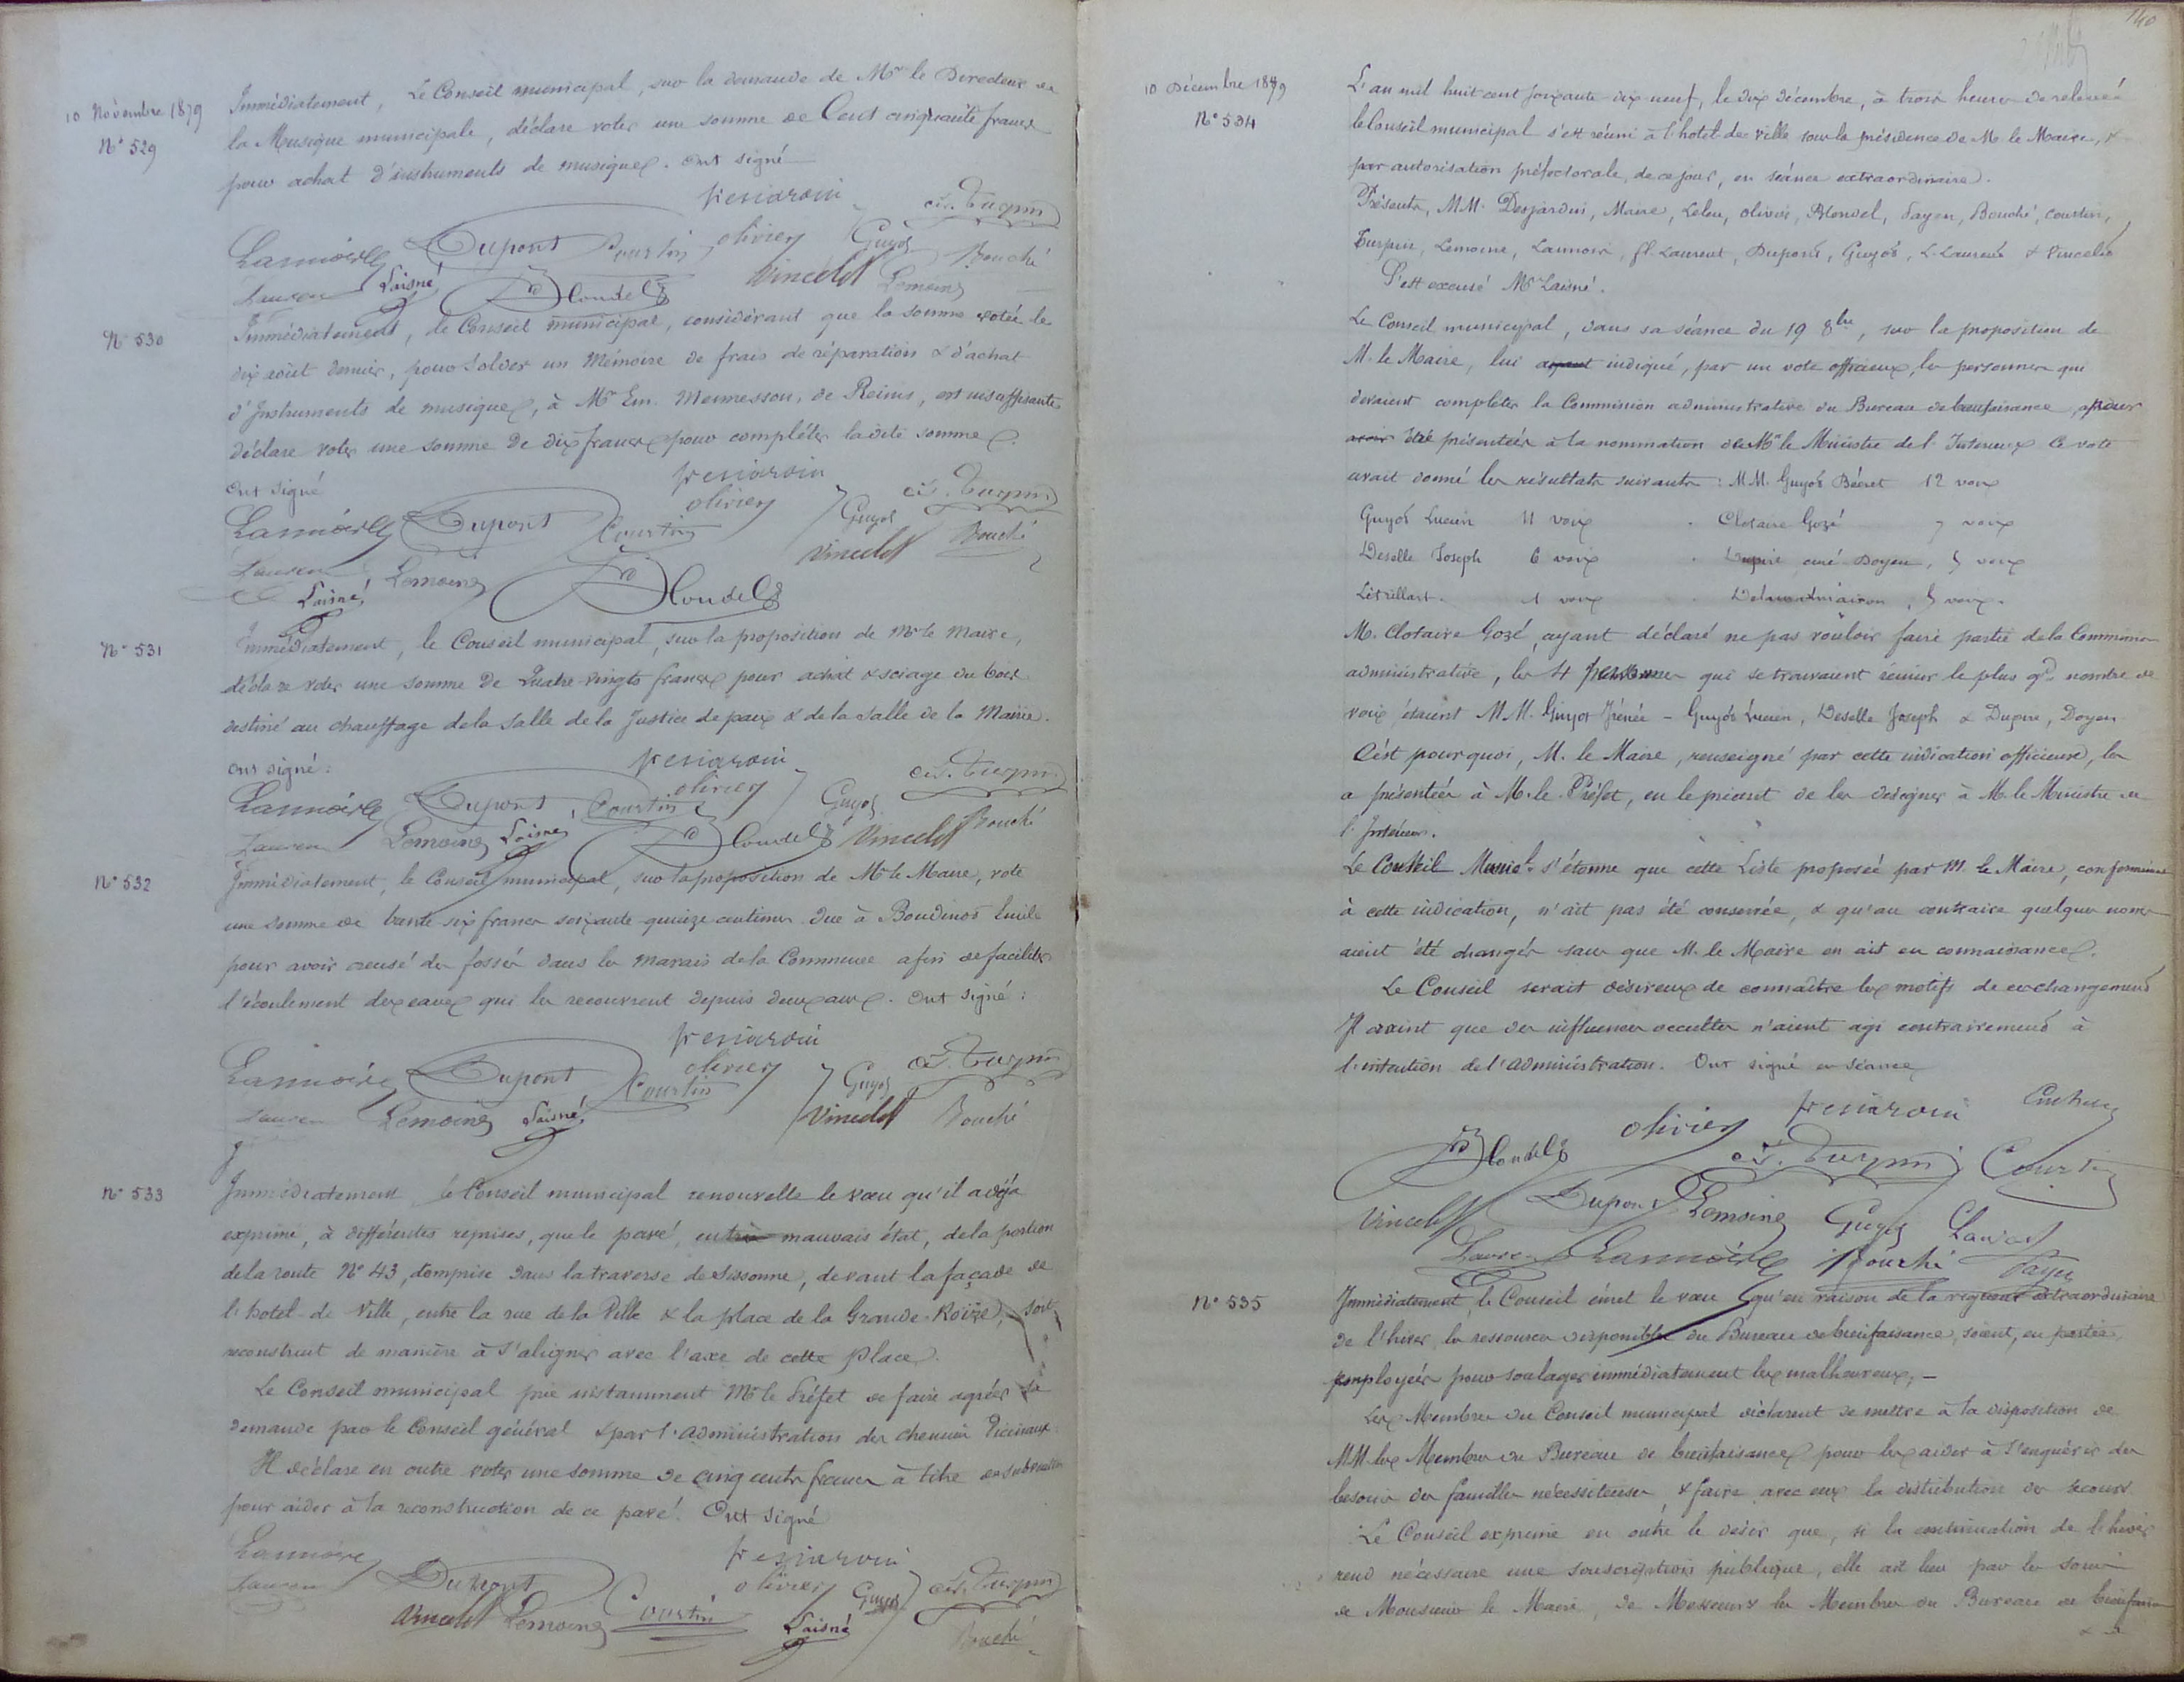 10 Novembre 1879
N° 529
Immédiatement, Le Conseil municipal, sur la demande de Mr le Directeur de
la Musique municipale, déclare voter une somme de Cent cinquante francs
pour achat d'instruments de musique. Ont signé
Desjardin
Ct. Turpin
Lannoire Dupont Courtin olivier Guyot Bouché
Laurent Laisné Blondel Vincelot Lemoine
N° 530
Immédiatement, le Conseil municipal, considérant que la somme votée le
dix août dernier, pour solder un Mémoire de frais de réparation & d'achat
d'Instruments de musique, à Mr Em. Mennesson, de Reims, est insuffisante
déclare voter une somme de dix francs pour compléter ladite somme.
Ont signé
Desjardin
olivier Ct. Turpin
Lannoire Dupont Courtin Guyot Bouché
Laurent Lemoine Vincelot
Laisné Blondel
N° 531
Immédiatement, le Conseil municipal, sur la proposition de Mr le Maire,
déclare voter une somme de Quatre-vingts francs pour achat & sciage du bois
destiné au chauffage de la salle de la Justice de paix & de la salle de la Mairie.
Ont signé :
Desjardin
olivier Ct. Turpin
Lannoire Dupont Courtin Guyot Bouché
Laurent Lemoine Laisné Blondel Vincelot
N° 532
Immédiatement, le Conseil municipal, sur la proposition de Mr le Maire, vote
une somme de trente six francs soixante-quinze centimes due à Boudinot Emile
pour avoir creusé des fossés dans les marais de la Commune afin de faciliter
l'écoulement des eaux qui les recouvrent depuis deux ans. Ont signé :
Desjardin
olivier Ct. Turpin
Lannoire Dupont Courtin Guyot
Laurent Lemoine Laisné Vincelot Bouché
N° 533
Immédiatement le Conseil municipal renouvelle le vœu qu'il a déjà
exprimé, à différentes reprises, que le pavé, en très mauvais état, de la portion
de la route N° 43, comprise dans la traverse de Sissonne, devant la façade de
l'hotel de Ville, entre la rue de la Ville & la place de la Grande-Roize, soit
reconstruit de manière à s'aligner avec l'axe de cette Place.
Le Conseil municipal prie instamment Mr le Préfet de faire agréer sa
demande par le Conseil général & par l'administration des chemins vicinaux.
Il déclare en outre voter une somme de cinq cents francs à titre de subvention
pour aider à la reconstruction de ce pavé. Ont signé
Lannoire Desjardin
Laurent Dupont olivier Guyot Ct. Turpin
Vincelot Lemoine Courtin Laisné Bouché
140
10 Décembre 1879
N° 534
L'an mil huit cent soixante-dix-neuf, le dix décembre, à trois heures de relevée
le Conseil municipal s'est réuni à l'hotel de Ville sous la présidence de M. le Maire, &
par autorisation préfectorale, de ce jour, en séance extraordinaire.
Présents, MM. Desjardin, Maire, Leleu, olivier, Blondel, Fayen, Bouché, Courtin,
Turpin, Lemoine, Lannoire, fl. Laurent, Dupont, Guyot, L. Laurent & Vincelot
S'est excusé Mr Laisné.
Le Conseil municipal, dans sa séance du 19 8bre, sur la proposition de
M. le Maire, lui ayant indiqué, par un vote officieux, les personnes qui
devaient compléter la Commission administrative du Bureau de bienfaisance, après
avoir été présentées à la nomination de Mr le Ministre de l'Intérieur. Ce vote
avait donné les résultats suivants : MM. Guyot Désiré 12 voix
Guyot Lucien 11 voix Clotaire Gozé 7 voix
Deselle Joseph 6 voix Dupire curé Doyen, 5 voix
Létrillart 1 voix 5 voix.
M. Clotaire Gozé, ayant déclaré ne pas vouloir faire partie de la Commission
administrative, les 4 personnes qui se trouvaient réunir le plus gd nombre de
voix étaient MM. Guyot Irénée - Guyot Lucien, Deselle Joseph & Dupire, Doyen
C'est pourquoi, M. le Maire, renseigné par cette indication officieuse, les
a présentées à M. le Préfet, en le priant de les désigner à M. le Ministre de
l'Intérieur.
Le Conseil Munic.l s'étonne que cette Liste proposée par M. le Maire, conformément
à cette indication, n'ait pas été conservée, & qu'au contraire quelques noms
aient été changés sans que M. le Maire en ait eu connaissance.
Le Conseil serait désireux de connaître les motifs de ce changement
Il craint que des influences occultes n'aient agi contrairement à
l'intention de l'administration. Ont signé en séance
Desjardin
Blondel olivier Ct. Turpin Courtin
Vincelot Dupont Lemoine Guyot Laurent
Laurent Lannoire Bouché Fayen
N° 535
Immédiatement, le Conseil émet le vœu qu'en raison de la rigueur extraordinaire
de l'hiver, les ressources disponibles du Bureau de bienfaisance, soient, en partie,
employées pour soulager immédiatement les malheureux, -
Les Membres du Conseil municipal déclarent se mettre à la disposition de
MM. les Membres du Bureau de bienfaisance pour les aider à s'enquérir des
besoins des familles nécessiteuses, & faire avec eux la distribution des secours
Le Conseil exprime en outre le désir que, si la continuation de l'hiver
rend nécessaire une souscription publique, elle ait lieu par les soins
de Monsieur le Maire, de Messieurs les Membres du Bureau de bienfaisance
& de